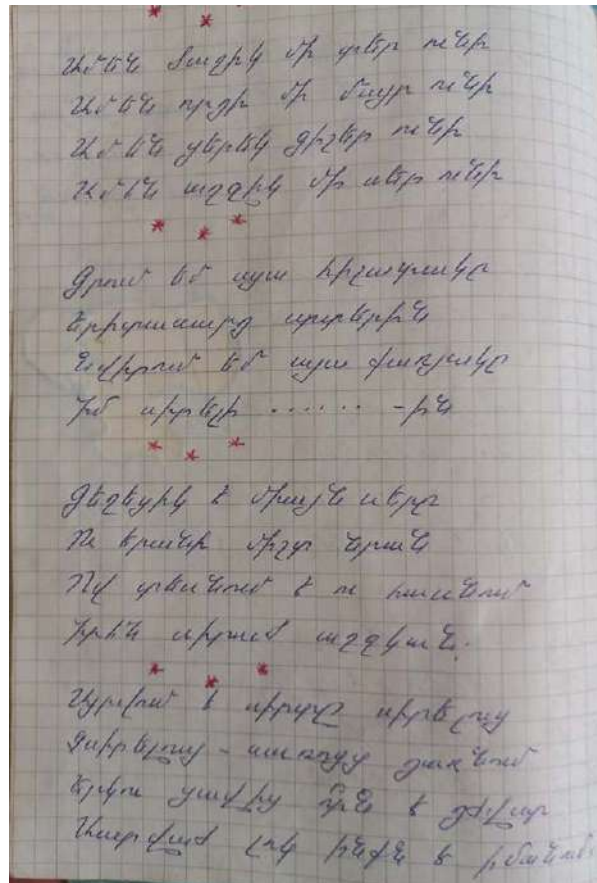 * *
Ամեն Ծաղիկ մի տեր ունի
Ամեն որդի մի մայր ունի
Ամեն ցերեկ գիշեր ունի
Ամեն աղջիկ մի սեր ունի
* * *
Գրում եմ այս հիշատակը
Երիտասարդ սրտերին
Նվիրում եմ այս քառյակը
Իմ սիրելի ...... -ին
* * *
Գեղեցիկ է միայն սերը
Ու երանի միշտ նրան
Ով տեսնում է ու հասնում
Իրեն սիրած աղջկան:
* * *
Այրվում է սիրտը սիրելուց
Չսիրելուց - սառույց դառնում
Երկու ցավից որն է դժվար
Աստված լոկ ինքն է իմանում: